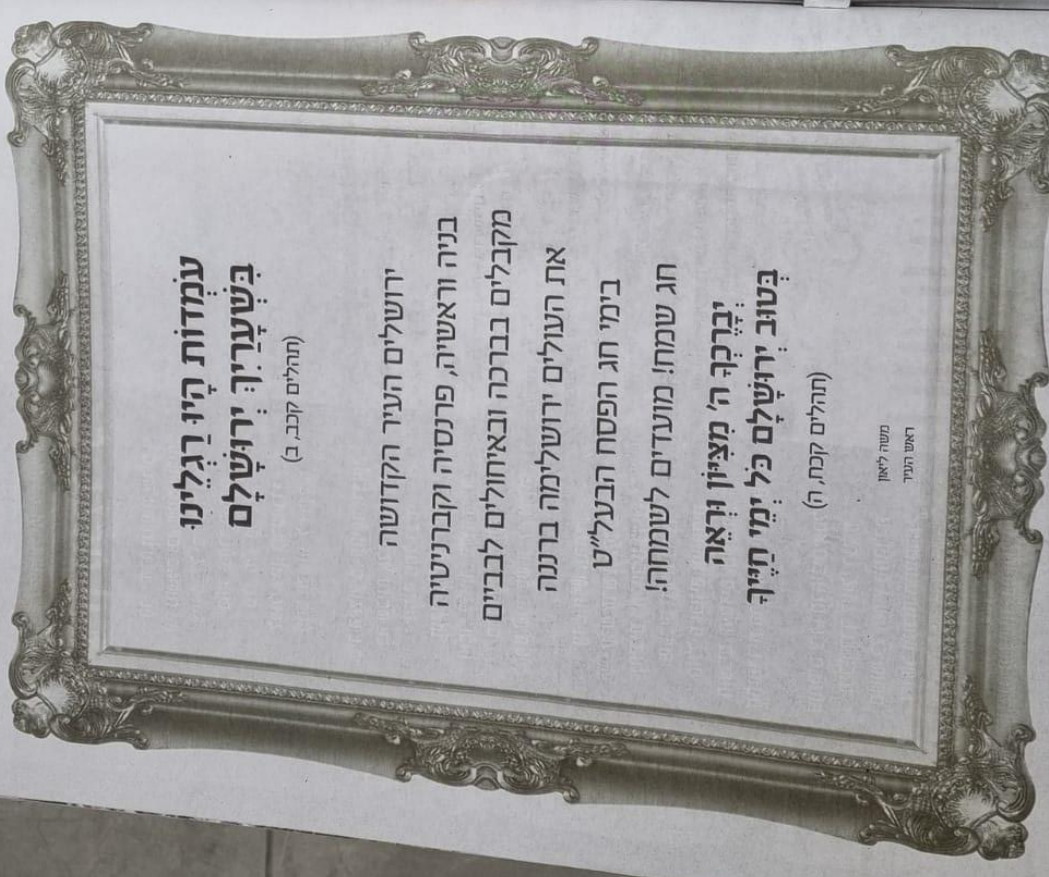 עֹמְדוֹת הָיוּ רַגְלֵינוּ
בִּשְׁעָרַיִךְ יְרוּשָׁלָ‍ִם
(תהלים קכב, ב)
ירושלים העיר הקדושה
בניה וראשיה, פרנסיה וקברניטיה
מקבלים בברכה ובאיחולים לבביים
את העולים ירושלימה ברננה
בימי חג הפסח הבעל"ט
חג שמח! מועדים לשמחה!
יְבָרֶכְךָ ה' מִצִּיּוֹן וּרְאֵה
בְּטוּב יְרוּשָׁלָ‍ִם כֹּל יְמֵי חַיֶּיךָ
(תהלים קכח, ה)
משה ליאון
ראש העיר